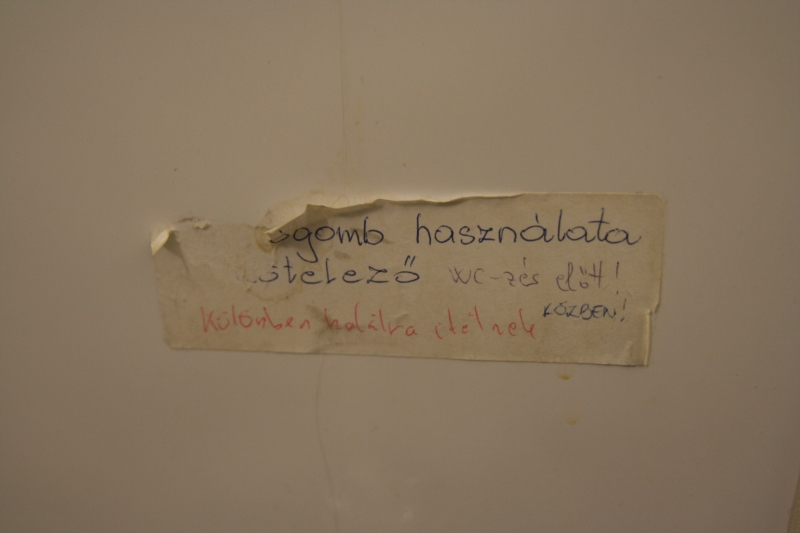 sgomb használata
ötelező WC-zés előtt!
KÖZBEN!
Különben halálra ítélnek